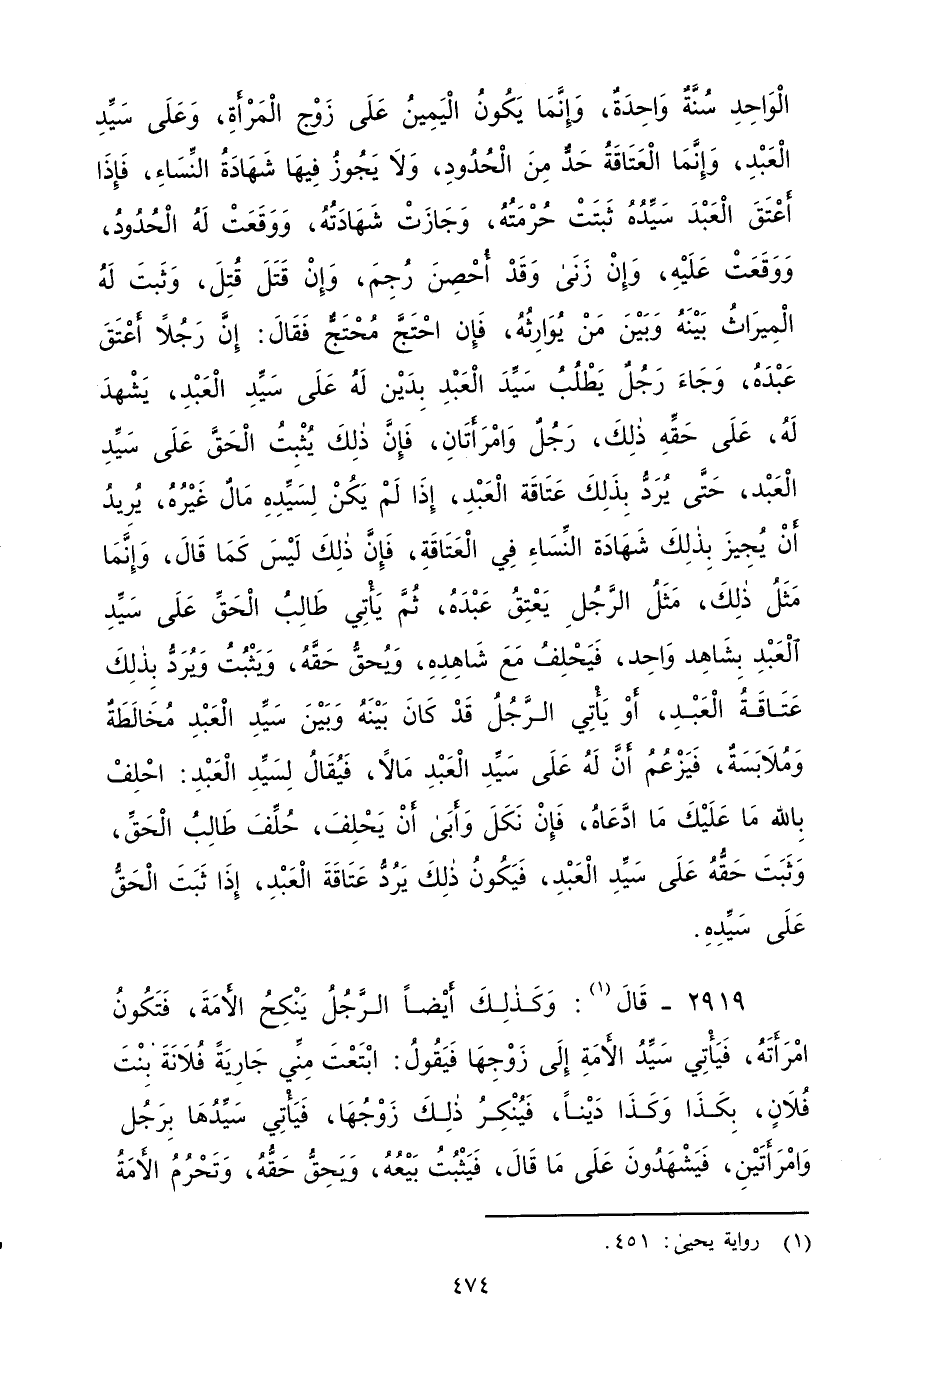 الْوَاحِدِ سُنَّةٌ وَاحِدَةٌ، وَإِنَّمَا يَكُونُ الْيَمِينُ عَلَى زَوْجِ الْمَرْأَةِ، وَعَلَى سَيِّدِ
الْعَبْدِ، وَإِنَّمَا الْعَتَاقَةُ حَدٌّ مِنَ الْحُدُودِ، وَلَا يَجُوزُ فِيهَا شَهَادَةُ النِّسَاءِ، فَإِذَا
أَعْتَقَ الْعَبْدَ سَيِّدُهُ ثَبَتَتْ حُرْمَتُهُ، وَجَازَتْ شَهَادَتُهُ، وَوَقَعَتْ لَهُ الْحُدُودُ،
وَوَقَعَتْ عَلَيْهِ، وَإِنْ زَنَىٰ وَقَدْ أُحْصِنَ رُجِمَ، وَإِنْ قَتَلَ قُتِلَ، وَثَبتَ لَهُ
الْمِيرَاثُ بَيْنَهُ وَبَيْنَ مَنْ يُوَارِثُهُ، فَإِن احْتَجَّ مُحْتَجٌّ فَقَالَ: إِنَّ رَجُلاً أَعْتَقَ
عَبْدَهُ، وَجَاءَ رَجُلٌ يَطْلُبُ سَيِّدَ الْعَبْدِ بِدَيْن لَهُ عَلَى سَيِّدِ الْعَبْدِ، يَشْهدَ
لَهُ، عَلَى حَقِّهِ ذٰلِكَ، رَجُلٌ وَامْرَأَتَان، فَإِنَّ ذٰلِكَ يُثْبِتُ الْحَقَّ عَلَى سَيِّدِ
الْعَبْد، حَتَّى يُرَدُّ بِذَلِكَ عَتَاقَة الْعَبْد، إِذَا لَمْ يَكُنْ لِسَيِّدِهِ مَالٌ غَيْرُهُ، يُرِيدُ
أَنْ يُجِيزَ بِذٰلِكَ شَهَادَة النِّسَاءِ فِي الْعَتَاقَةِ، فَإِنَّ ذٰلِكَ لَيْسَ كَمَا قَالَ، وَإِنَّمَا
مَثَلُ ذٰلِكَ، مَثَلُ الرَّجُلِ يَعْتِقُ عَبْدَهُ، ثُمَّ يَأْتِي طَالِبُ الْحَقِّ عَلَى سَيِّدِ
ٱلْعَبْدِ بِشَاهِد وَاحِد، فَيَحْلِفُ مَعَ شَاهِدِهِ، وَيُحقُّ حَقَّهُ، وَيَثْبُتُ وَيُرَدُّ بذٰلكَ
عَتَاقَةُ الْعَبْدِ، أَوْ يَأْتِي الرَّجُلُ قَدْ كَانَ بَيْنَهُ وَبَيْنَ سَيِّدِ الْعَبْدِ مُخَالَطَةٌ
وَمُلَابَسَةٌ، فَيَزْعُمُ أَنَّ لَهُ عَلَى سَيِّدِ الْعَبْدِ مَالًا، فَيُقَالُ لِسَيِّدِ الْعَبْدِ: احْلِفْ
بِالله مَا عَلَيْكَ مَا ادَّعَاهُ، فَإِنْ نَكَلَ وَأَبَىٰ أَنْ يَحْلِفَ، حُلِّفَ طَالِبُ الْحَقِّ،
وَثَبَتَ حَقُّهُ عَلَى سَيِّدِ الْعَبْدِ، فَيَكُونُ ذٰلِكَ يَرُدُّ عَتَاقَةَ الْعَبْدِ، إِذَا ثَبَتَ الْحَقُّ
عَلَى سَيِّدِهِ.
٢٩١٩ - قَالَ(١): وَكَذٰلِكَ أَيْضاً الرَّجُلُ يَنْكِحُ الأَمَةَ، فَتَكُونُ
امْرَأَتَهُ، فَيَأْتِي سَيِّدُ الأَمَةِ إِلَى زَوْجِهَا فَيَقُولُ: ابْتَعْتَ مِنِّي جَارِيَةً فُلَانَةَ بْنْتَ
فُلَانٍ، بِكَذَا وَكَذَا دَيْناً، فَيُنْكِرُ ذٰلِكَ زَوْجُهَا، فَيَأْتِي سَيِّدُهَا بِرَجُل
وَامْرَأَتَيْنِ، فَيَشْهَدُونَ عَلَى مَا قَالَ، فَيَثْبُتُ بَيْعُهُ، وَيَحِقُّ حَقُّهُ، وَتَحْرُمُ الأَمَةُ
(١) رواية يحيىٰ: ٤٥١.
٤٧٤